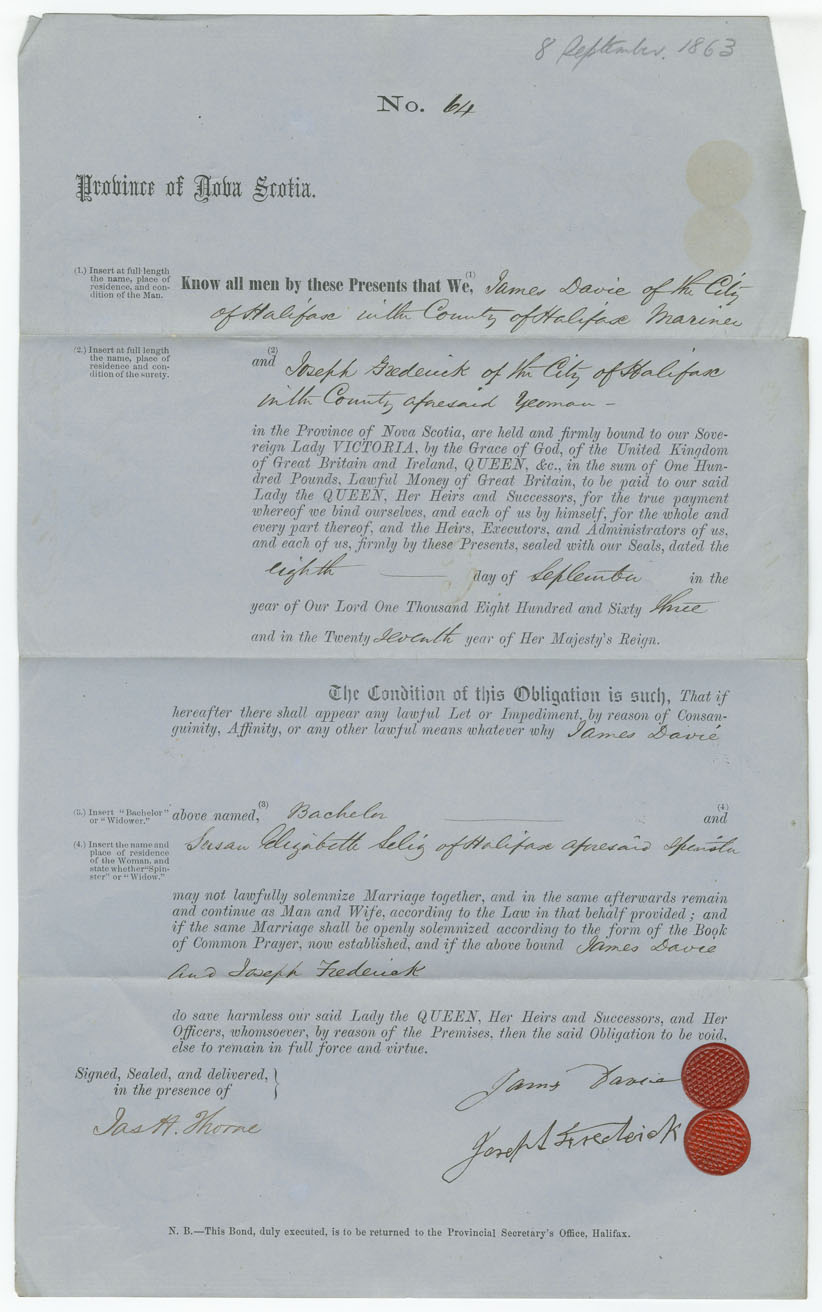 8 September. 1863
No. 64
Province of Nova Scotia.
(1.) Insert at full length
the name, place of
residence, and con-
dition of the Man.
Know all men by these Presents that We, (1) James Davie of the City
of Halifax in the County of Halifax Mariner
(2.) Insert at full length
the name, place of
residence and con-
dition of the surety.
(2)
and Joseph Frederick of the City of Halifax
in the County aforesaid Yeoman –
in the Province of Nova Scotia, are held and firmly bound to our Sove-
reign Lady VICTORIA, by the Grace of God, of the United Kingdom
of Great Britain and Ireland, QUEEN, &c., in the sum of One Hun-
dred Pounds, Lawful Money of Great Britain, to be paid to our said
Lady the QUEEN, Her Heirs and Successors, for the true payment
whereof we bind ourselves, and each of us by himself, for the whole and
every part thereof, and the Heirs, Executors, and Administrators of us,
and each of us, firmly by these Presents, sealed with our Seals, dated the
eighth — day of September in the
year of Our Lord One Thousand Eight Hundred and Sixty three
and in the Twenty seventh year of Her Majesty's Reign.
The Condition of this Obligation is such, That if
hereafter there shall appear any lawful Let or Impediment, by reason of Consan-
guinity, Affinity, or any other lawful means whatever why James Davie
(3.) Insert "Bachelor"
or "Widower."
above named, (3) Bachelor — (4) and
(4.) Insert the name and
place of residence
of the Woman, and
state whether "Spin-
ster" or "Widow."
Susan Elizabeth Selig of Halifax aforesaid Spinster
may not lawfully solemnize Marriage together, and in the same afterwards remain
and continue as Man and Wife, according to the Law in that behalf provided; and
if the same Marriage shall be openly solemnized according to the form of the Book
of Common Prayer, now established, and if the above bound James Davie
and Joseph Frederick
do save harmless our said Lady the QUEEN, Her Heirs and Successors, and Her
Officers, whomsoever, by reason of the Premises, then the said Obligation to be void,
else to remain in full force and virtue.
Signed, Sealed, and delivered,
in the presence of
Jas H. Thorne
James Davie
Joseph Frederick
N. B.—This Bond, duly executed, is to be returned to the Provincial Secretary's Office, Halifax.